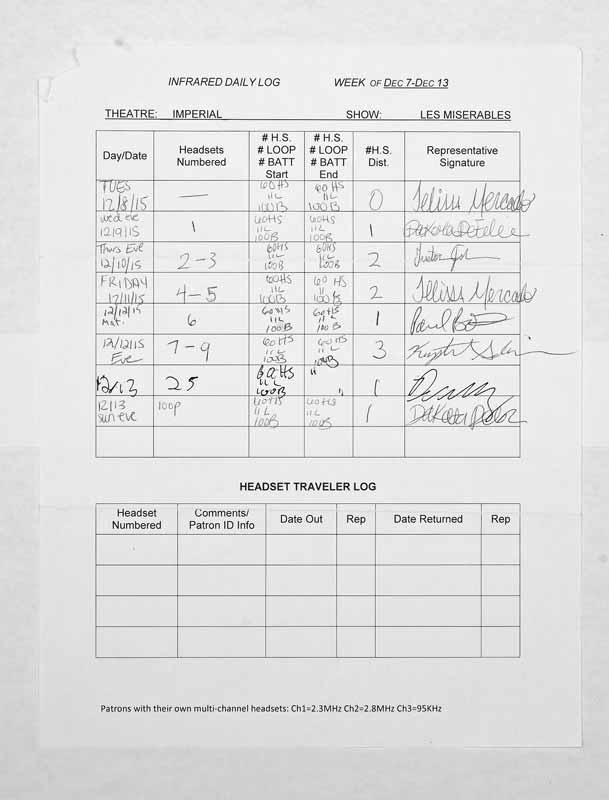 INFRARED DAILY LOG WEEK OF DEC 7-DEC 13
THEATRE: IMPERIAL SHOW: LES MISERABLES
Day/Date Headsets Numbered # H.S. # LOOP # BATT Start # H.S. # LOOP # BATT End #H.S. Dist. Representative Signature
TUES 12/8/15 — 60HS 11L 100B 60HS 11L 100B 0 Mercado
wed eve 12/9/15 1 60HS 11L 100B 60HS 11L 100B 1 Dakota
Thurs Eve 12/10/15 2-3 60HS 11L 100B 60HS 11L 100B 2
FRIDAY 12/11/15 4-5 60HS 11L 100B 60 HS 11L 100B 2 Mercado
12/12/15 Mat. 6 60HS 11L 100B 60HS 11L 100B 1 Paul
12/12/15 Eve 7-9 60HS 11L 100B 60HS 11L 100B 3
12/13 25 60HS 11L 100B " " 1
12/13 sun eve 100p 60HS 11L 100B 60HS 11L 100B 1 Dakota
HEADSET TRAVELER LOG
Headset Numbered Comments/ Patron ID Info Date Out Rep Date Returned Rep
Patrons with their own multi-channel headsets: Ch1=2.3MHz Ch2=2.8MHz Ch3=95KHz